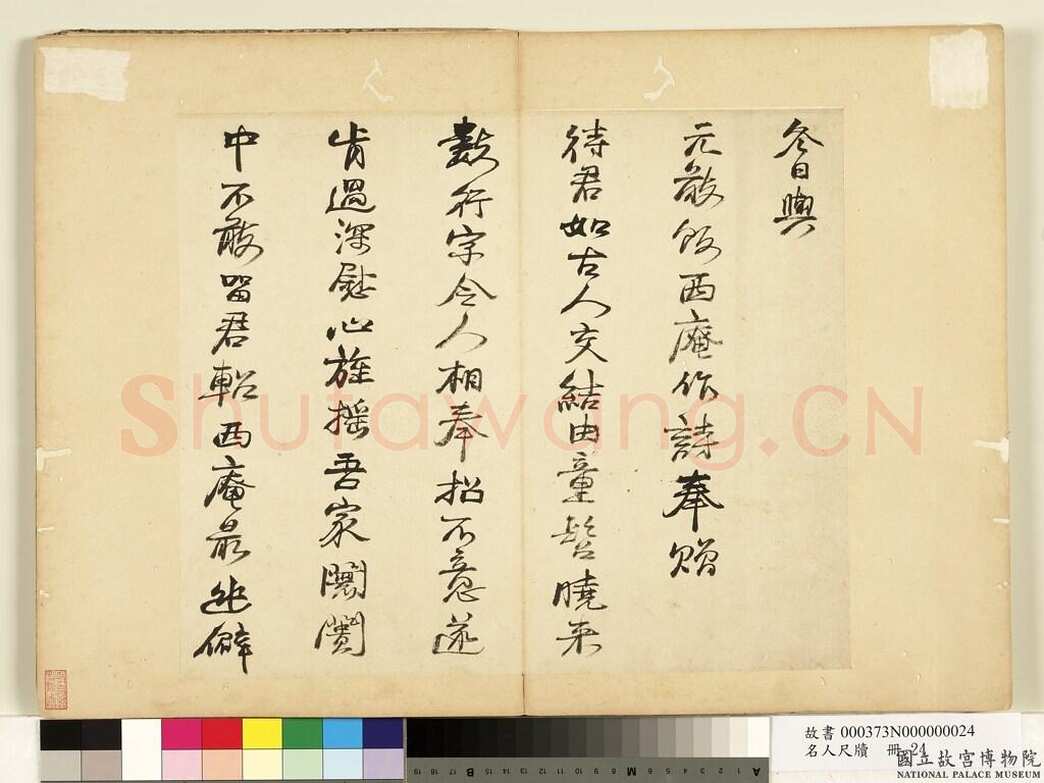 冬日與
元敬飲西庵作詩奉贈
待君如古人交結由童髫曉來
數行字令人相奉招不意遂
肯過深慰心旌搖吾家闤闠
中不敢留君軺西庵最幽僻
Shufawang.CN
故書 000373N000000024
名人尺牘 冊 24
國立故宮博物院
NATIONAL PALACE MUSEUM